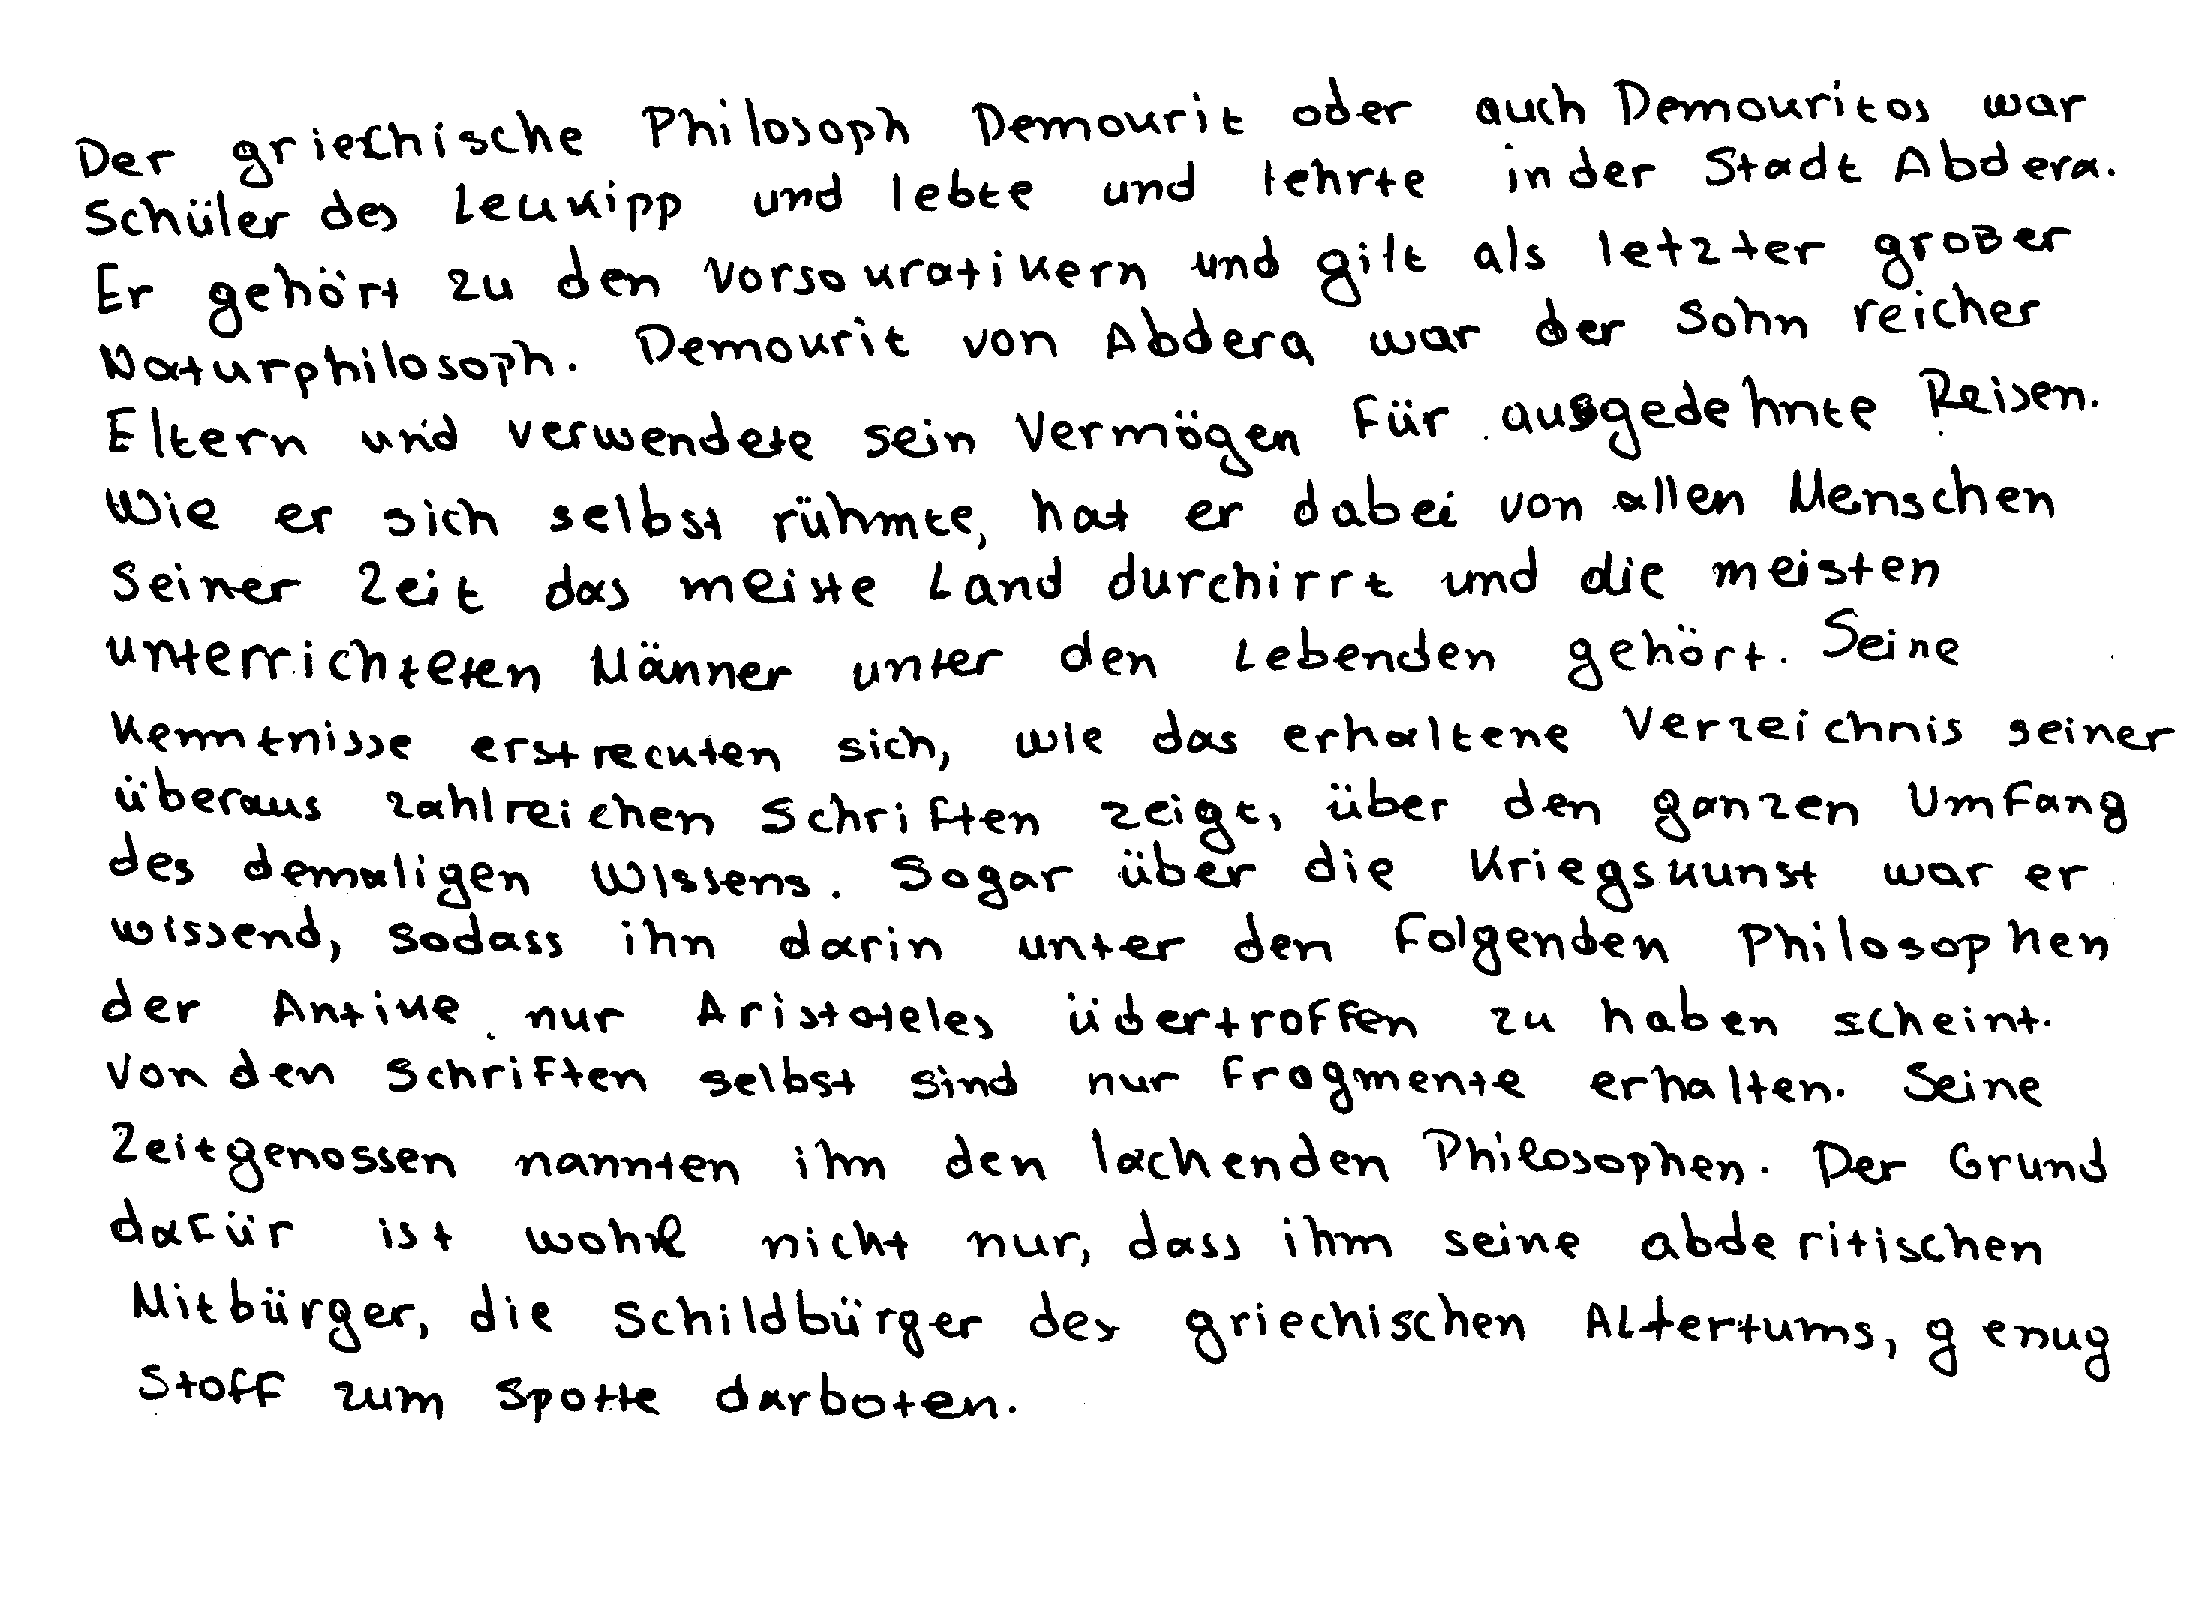 Der griechische Philosoph Demokrit oder auch Demokritos war
Schüler des Leukipp und lebte und lehrte in der Stadt Abdera.
Er gehört zu den Vorsokratikern und gilt als letzter großer
Naturphilosoph. Demokrit von Abdera war der Sohn reicher
Eltern und verwendete sein Vermögen für ausgedehnte Reisen.
Wie er sich selbst rühmte, hat er dabei von allen Menschen
seiner Zeit das meiste Land durchirrt und die meisten
unterrichteten Männer unter den Lebenden gehört. Seine
Kenntnisse erstreckten sich, wie das erhaltene Verzeichnis seiner
überaus zahlreichen Schriften zeigt, über den ganzen Umfang
des demaligen Wissens. Sogar über die Kriegskunst war er
wissend, sodass ihn darin unter den folgenden Philosophen
der Antike nur Aristoteles übertroffen zu haben scheint.
Von den Schriften selbst sind nur Fragmente erhalten. Seine
Zeitgenossen nannten ihn den lachenden Philosophen. Der Grund
dafür ist wohl nicht nur, dass ihm seine abderitischen
Mitbürger, die Schildbürger des griechischen Altertums, genug
Stoff zum Spotte darboten.